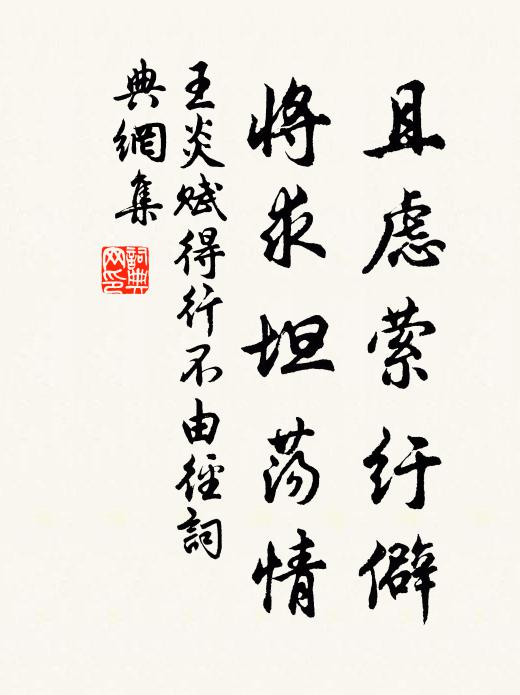 且慮縈紆僻
將求坦蕩情
王炎賦得行不由徑詞
典網集
詞典網印